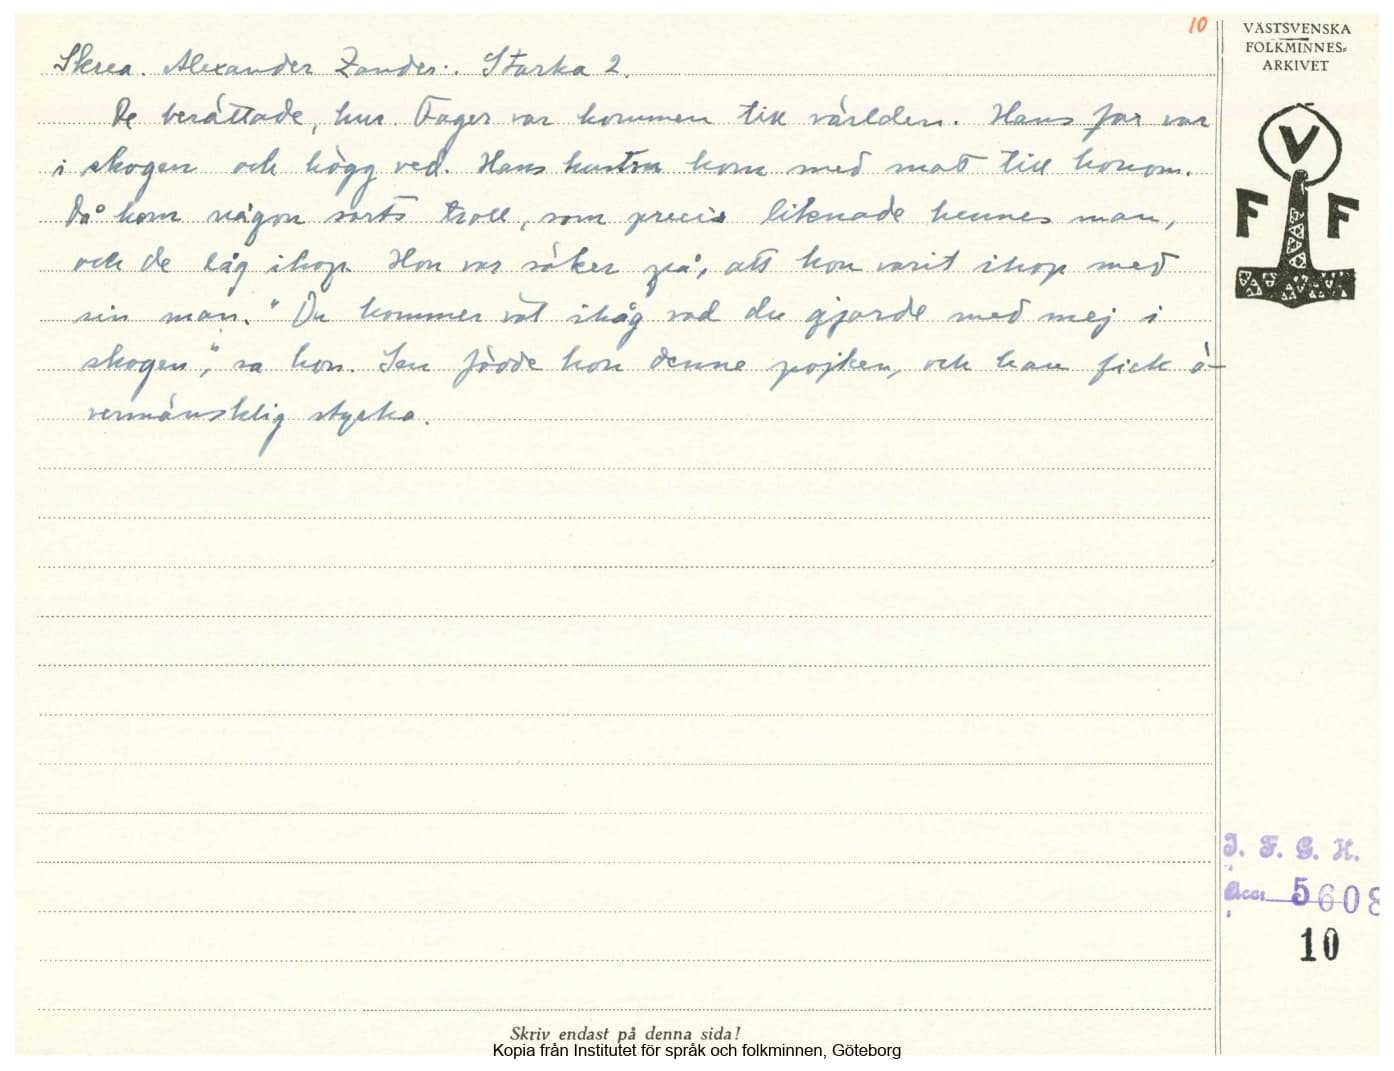 10
VÄSTSVENSKA
FOLKMINNES=
ARKIVET
Skrea. Alexander Zander. Starka 2.
De berättade, hur Fager var kommen till världen. Hans far var
i skogen och högg ved. Hans hustru kom med mat till honom.
Då kom någon sorts troll, som precis liknade hennes man,
och de låg ihop. Hon var säker på, att hon varit ihop med
sin man. "Du kommer väl ihåg vad du gjorde med mej i
skogen", sa hon. Sen födde hon denne pojken, och han fick ö-
vermänsklig styrka.
V
F F
I. F. G. H.
Acc. 5608
10
Skriv endast på denna sida!
Kopia från Institutet för språk och folkminnen, Göteborg